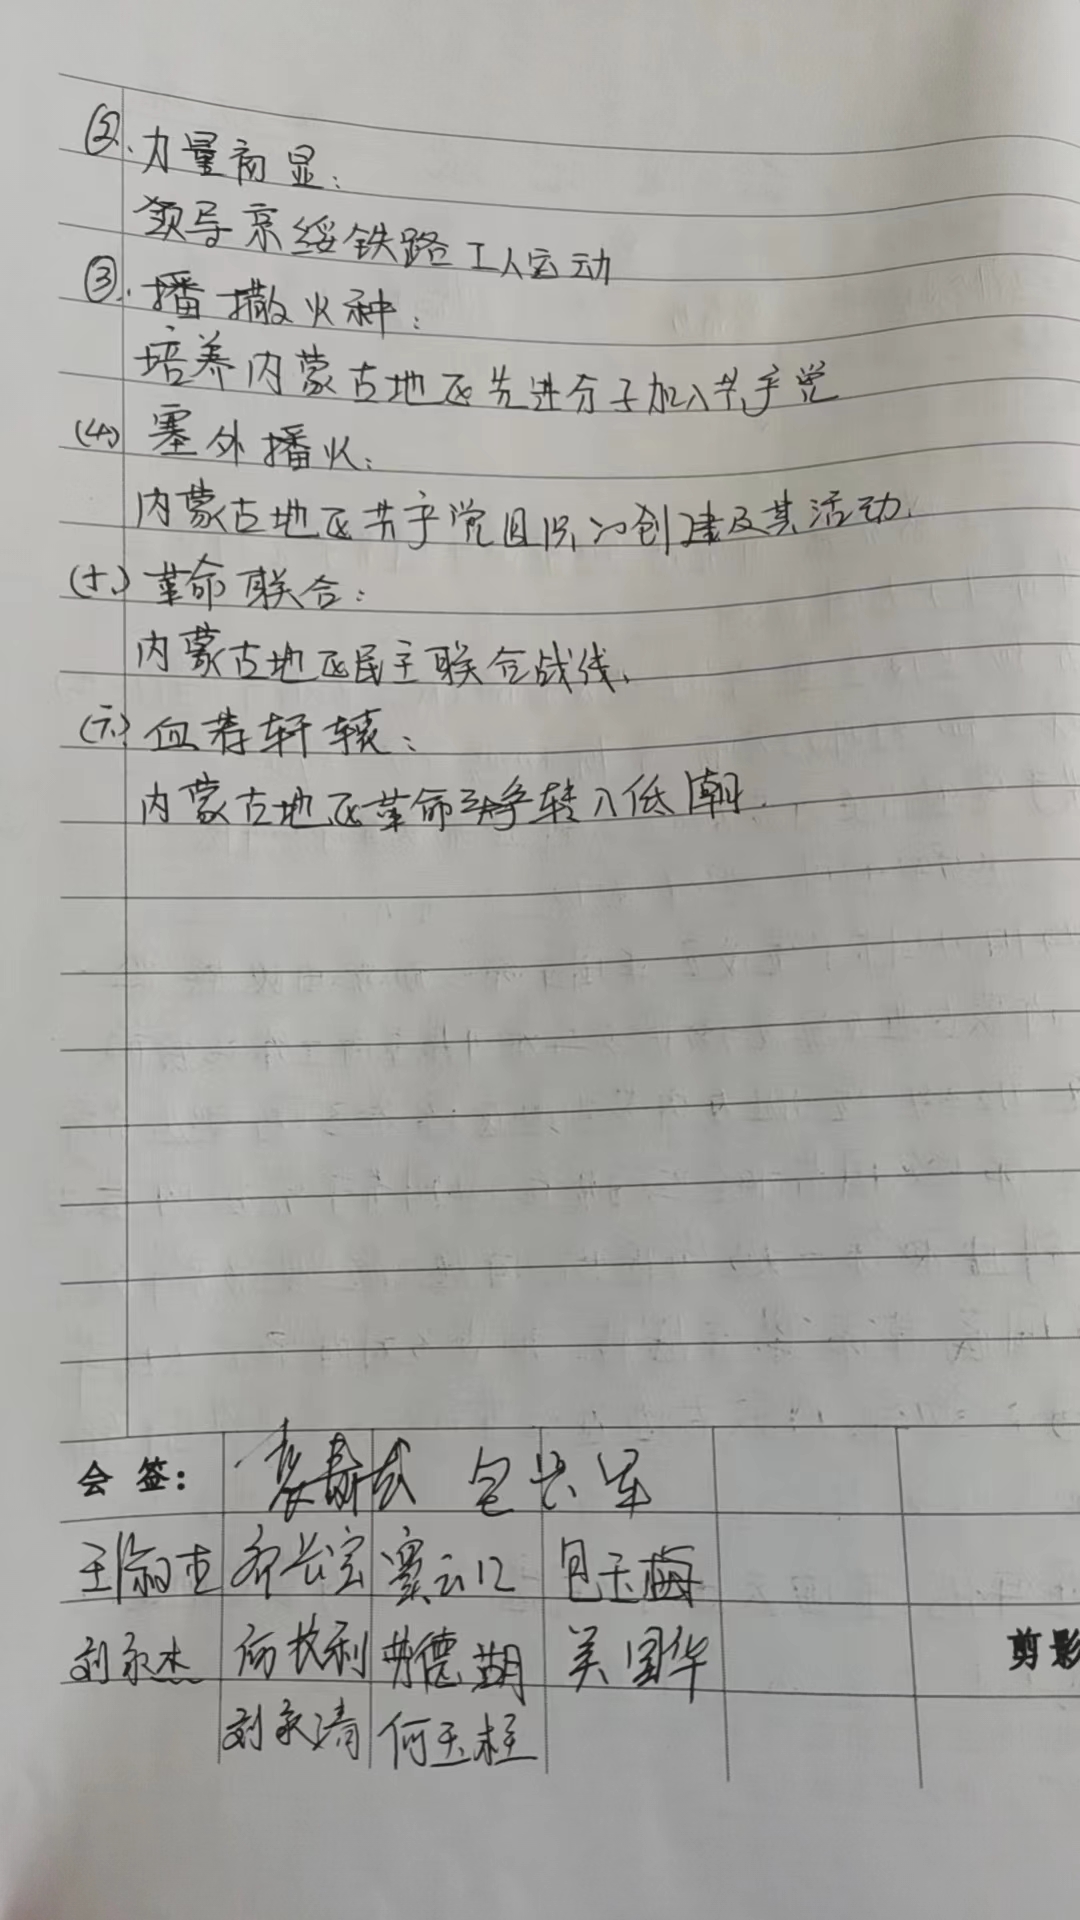 ②.力量初显：
领导京绥铁路工人运动
③.播撒火种：
培养内蒙古地区先进分子加入共产党
(4) 塞外播火：
内蒙古地区共产党组织的创建及其活动.
(十.) 革命联合：
内蒙古地区民主联合战线.
(六.) 血荐轩辕：
内蒙古地区革命斗争转入低潮.
会 签：
包玉梅
刘永杰 吴国华
刘永清 何玉柱
剪影